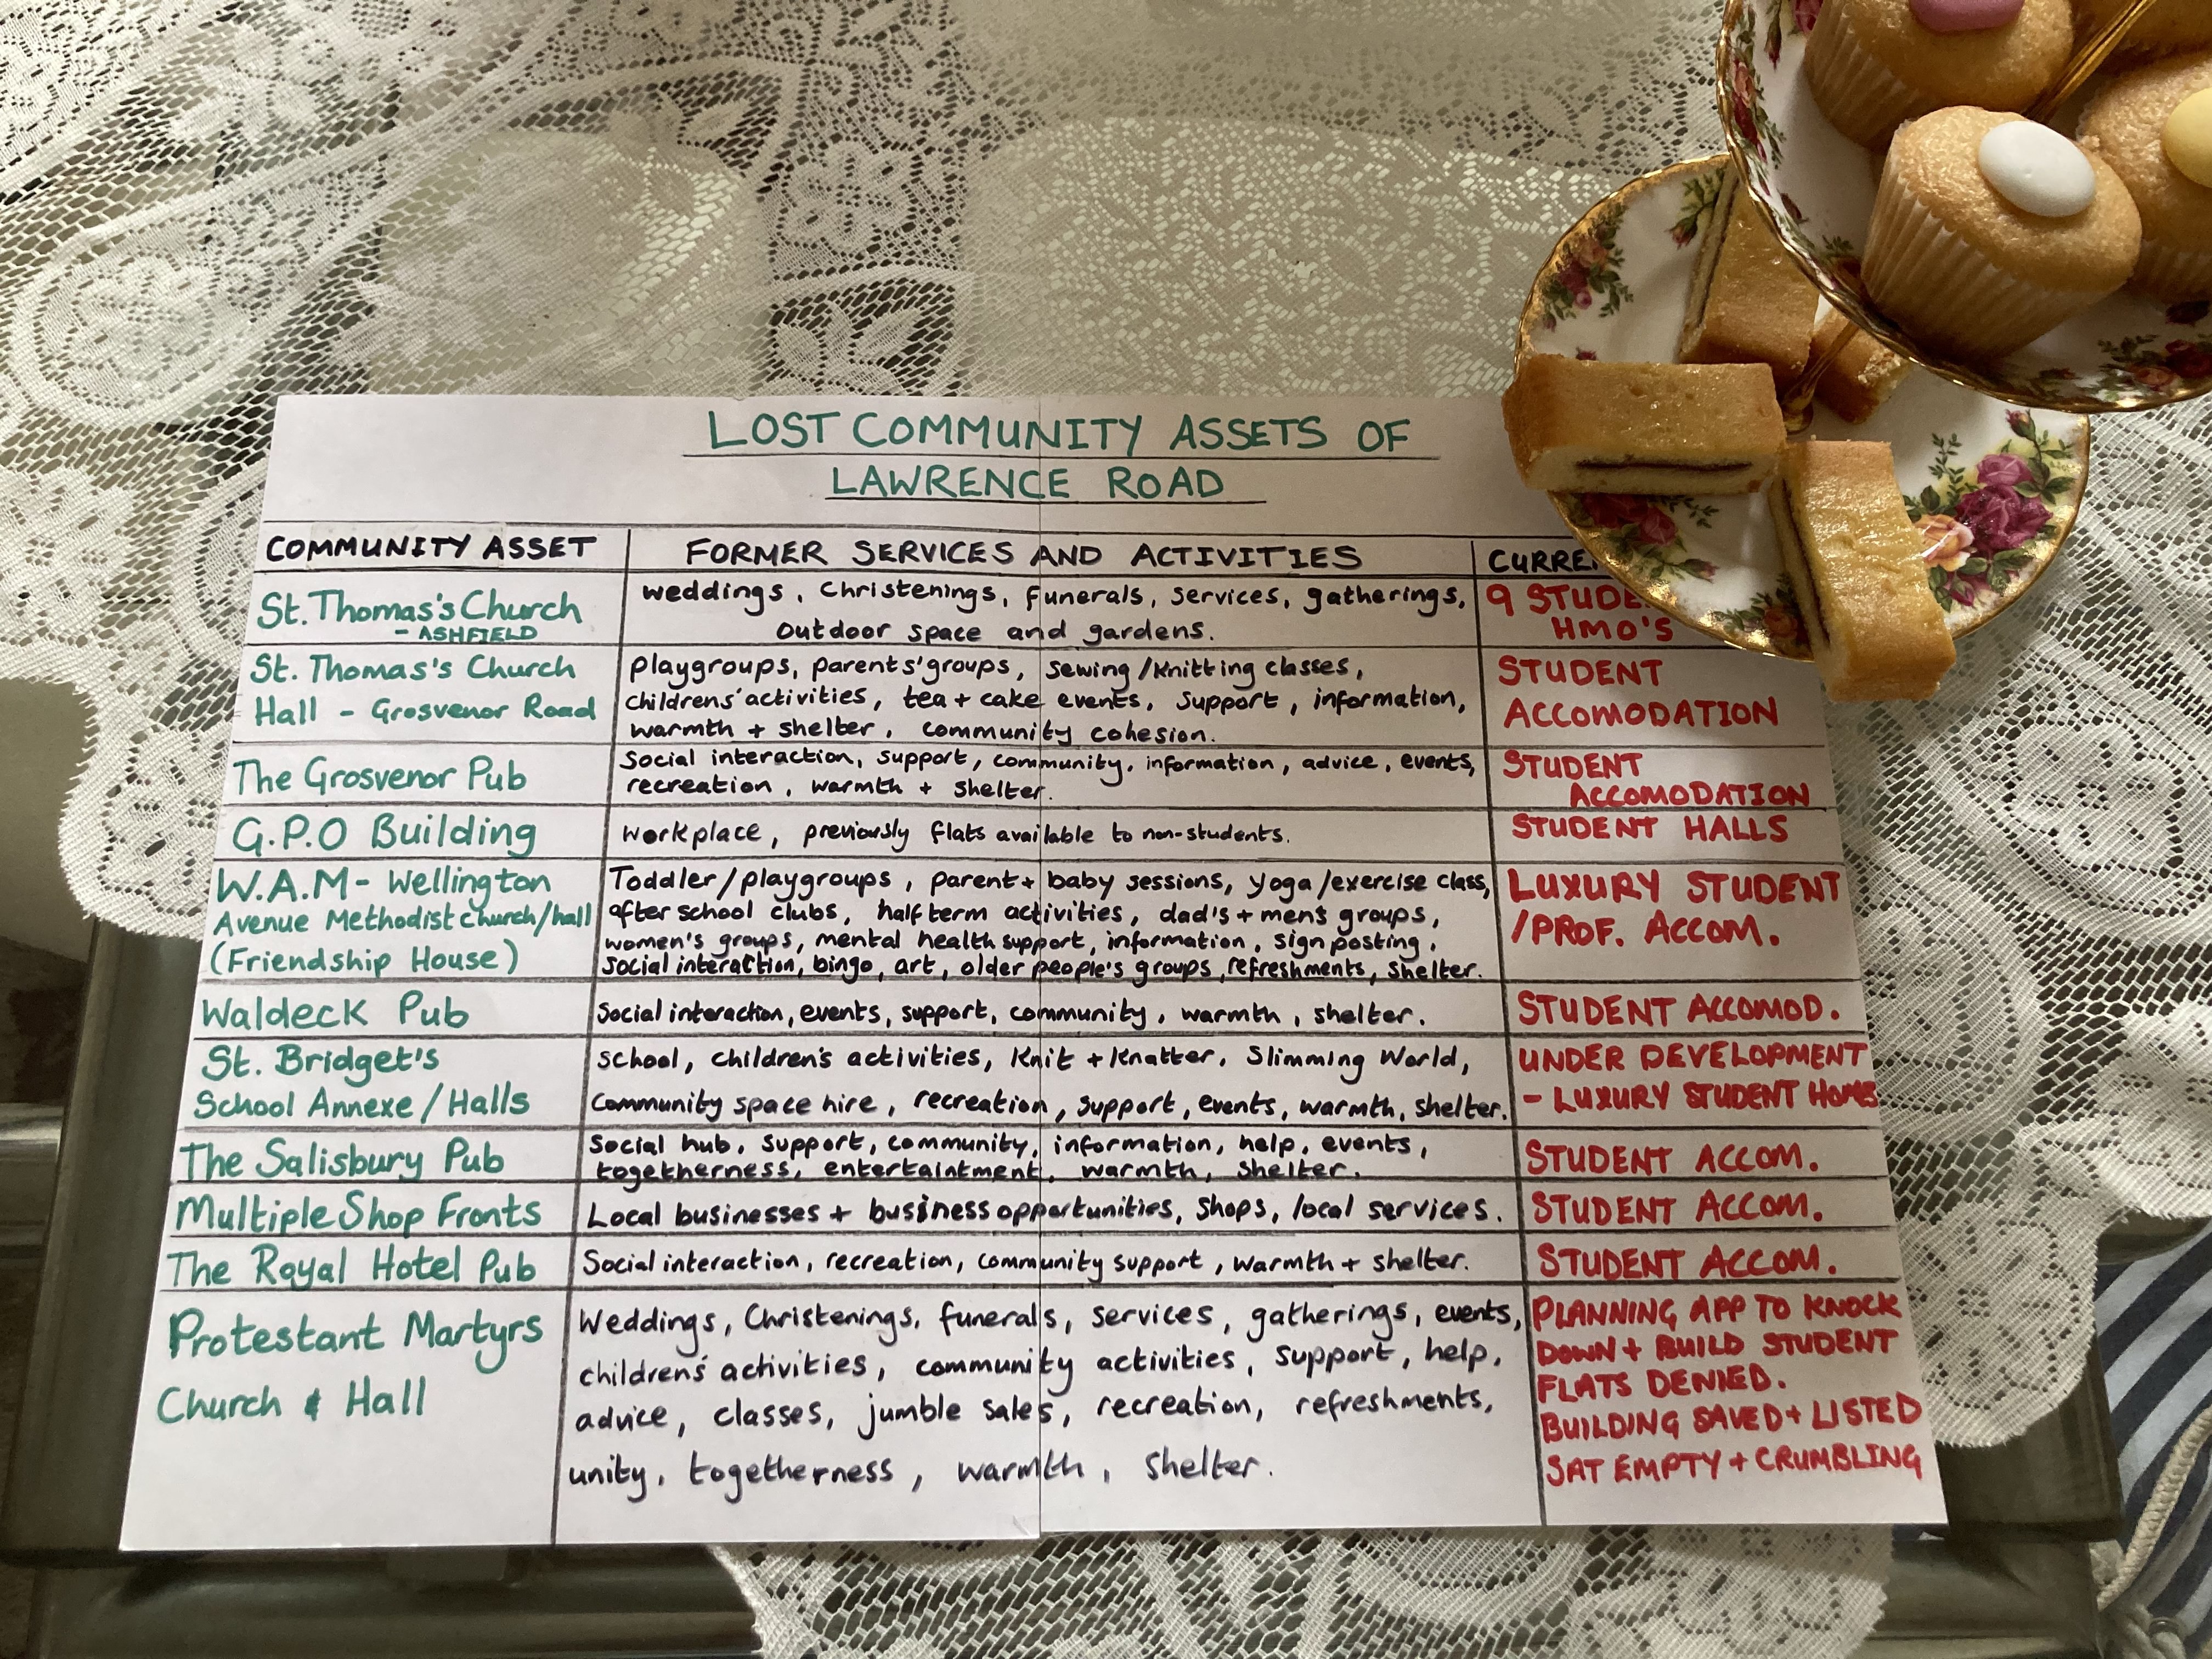 LOST COMMUNITY ASSETS OF
LAWRENCE ROAD
COMMUNITY ASSET
FORMER SERVICES AND ACTIVITIES
St. Thomas's Church
- ASHFIELD
weddings, Christenings, funerals, services, gatherings,
outdoor space and gardens.
9
HMO'S
St. Thomas's Church
Hall - Grosvenor Road
playgroups, parents' groups, sewing/knitting classes,
childrens' activities, tea + cake events, support, information,
warmth + shelter, community cohesion.
STUDENT
ACCOMODATION
The Grosvenor Pub
Social interaction, support, community, information, advice, events,
recreation, warmth + shelter.
STUDENT
ACCOMODATION
G.P.O Building
workplace, previously flats available to non-students.
STUDENT HALLS
W.A.M - Wellington
Avenue Methodist church/hall
(Friendship House)
Toddler/playgroups, parent + baby sessions, yoga/exercise class,
after school clubs, half term activities, dad's + men's groups,
women's groups, mental health support, information, sign posting,
social interaction, bingo, art, older people's groups, refreshments, shelter.
LUXURY STUDENT
/PROF. ACCOM.
Waldeck Pub
Social interaction, events, support, community, warmth, shelter.
STUDENT ACCOMOD.
St. Bridget's
School Annexe/Halls
school, children's activities, Knit + Knatter, Slimming World,
community space hire, recreation, support, events, warmth, shelter.
UNDER DEVELOPMENT
- LUXURY STUDENT HOMES
The Salisbury Pub
Social hub, support, community, information, help, events,
togetherness, entertaintment, warmth, shelter.
STUDENT ACCOM.
Multiple Shop Fronts
Local businesses + business opportunities, shops, local services.
STUDENT ACCOM.
The Royal Hotel Pub
Social interaction, recreation, community support, warmth + shelter.
STUDENT ACCOM.
Protestant Martyrs
Church & Hall
Weddings, Christenings, funerals, services, gatherings, events,
children's activities, community activities, support, help,
advice, classes, jumble sales, recreation, refreshments,
unity, togetherness, warmth, shelter.
PLANNING APP TO KNOCK
DOWN + BUILD STUDENT
FLATS DENIED.
BUILDING SAVED + LISTED
SAT EMPTY + CRUMBLING